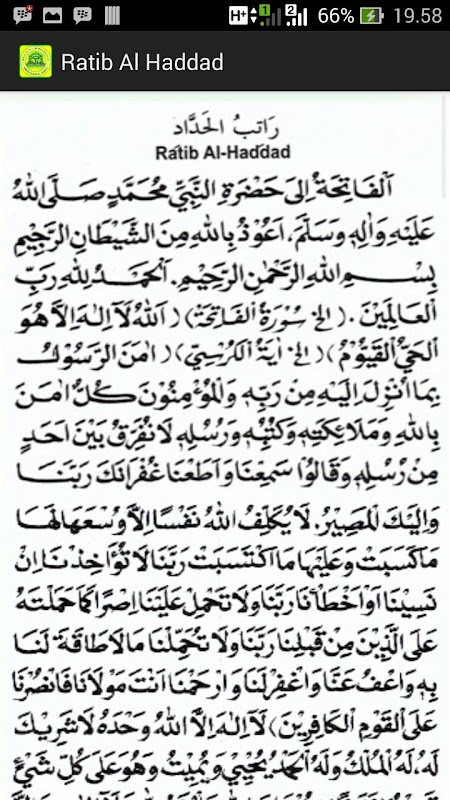 66% 19.58
Ratib Al Haddad
رَاتِبُ الْحَدَّاد
Rātib Al-Haddad
اَلْفَاتِحَةُ اِلَى حَضْرَةِ النَّبِيِّ مُحَمَّدٍ صَلَّى اللهُ
عَلَيْهِ وَاٰلِهِ وَسَلَّمَ، اَعُوْذُ بِاللهِ مِنَ الشَّيْطَانِ الرَّجِيْمِ
بِسْمِ اللهِ الرَّحْمٰنِ الرَّحِيْمِ. اَلْحَمْدُ لِلهِ رَبِّ
الْعَالَمِيْنَ. (الخ سُوْرَةُ الْفَاتِحَةْ) (اَللهُ لَآ اِلٰهَ اِلَّا هُوَ
الْحَيُّ الْقَيُّوْمُ) (الخ اٰيَةُ الْكُرْسِيْ) (اٰمَنَ الرَّسُوْلُ
بِمَا اُنْزِلَ اِلَيْهِ مِنْ رَبِّهِ وَالْمُؤْمِنُوْنَ كُلٌّ اٰمَنَ
بِاللهِ وَمَلَائِكَتِهِ وَكُتُبِهِ وَرُسُلِهِ لَا نُفَرِّقُ بَيْنَ اَحَدٍ
مِنْ رُسُلِهِ وَقَالُوْا سَمِعْنَا وَاَطَعْنَا غُفْرَانَكَ رَبَّنَا
وَاِلَيْكَ الْمَصِيْرُ. لَا يُكَلِّفُ اللهُ نَفْسًا اِلَّا وُسْعَهَا لَهَا
مَاكَسَبَتْ وَعَلَيْهَا مَا اكْتَسَبَتْ رَبَّنَا لَا تُؤَاخِذْنَا اِنْ
نَسِيْنَا اَوْ اَخْطَأْنَا رَبَّنَا وَلَا تَحْمِلْ عَلَيْنَا اِصْرًا كَمَا حَمَلْتَهُ
عَلَى الَّذِيْنَ مِنْ قَبْلِنَا رَبَّنَا وَلَا تُحَمِّلْنَا مَالَا طَاقَةَ لَنَا
بِهِ وَاعْفُ عَنَّا وَاغْفِرْلَنَا وَارْحَمْنَا اَنْتَ مَوْلَانَا فَانْصُرْنَا
عَلَى الْقَوْمِ الْكَافِرِيْنَ) لَآ اِلٰهَ اِلَّا اللهُ وَحْدَهُ لَا شَرِيْكَ
لَهُ، لَهُ الْمُلْكُ وَلَهُ الْحَمْدُ يُحْيِيْ وَيُمِيْتُ وَهُوَ عَلَى كُلِّ شَيْءٍ